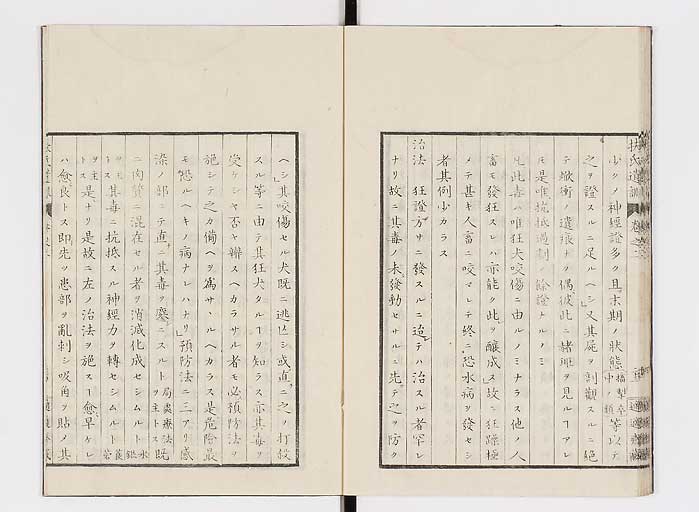 扶氏遺訓 卷之二
少クノ神經證多ク且末期ノ狀態搐掣卒中ノ類等以テ
之ヲ證スルニ足ルヘシ又其屍ヲ剖觀スルニ絕
テ焮衝ノ遺痕ナク偶彼此ニ赭斑ヲ見ルヿアレ
𪜈是唯抗抵過劇ノ餘證トルノミ
凡此毒ハ唯狂犬咬傷ニ由ルノミナラス他ノ人
畜モ發狂スレハ亦能ク此ヲ釀成ス故ニ狂躁極
メテ甚キ人畜ニ咬マレテ終ニ恐水病ヲ發セシ
者其例少カラス
治法 狂證方サニ發スルニ迨テハ治スル者罕レ
ナリ故ニ其毒ノ未發動セサルニ先テ之ヲ防ク
ヘシ其咬傷セル犬既ニ逃亡シ或直ニ之ヲ打殺
スル等ニ由テ其狂犬タルヿヲ知ラス亦其毒ヲ
受ケシヤ否ヤ辨スヘカラサル者モ必預防法ヲ
施シテ之カ備ヘヲ爲サヽルヘカラス是危險最
モ恐ルヘキノ病ナレハナリ預防法ニ三アリ感
染ノ部ニテ直ニ其毒ヲ鏖ニスルト局處療法ヲ主トス既
ニ肉質ニ混在セル者ヲ消滅化成セシムルト水銀
ヲモ其毒ニ抗抵スル神經力ヲ轉セシムルト莨菪
ヲ主トス是ナリ是故ニ左ノ治法ヲ施スヿ愈早ケレ
ハ愈良トス即先ツ患部ヲ亂刺シ吸角ヲ貼メ其